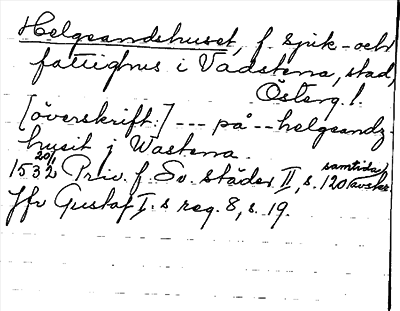 Helgeandshuset, f. sjuk- och
fattighus i Vadstena, stad,
Österg. l.
[överskrift:] --- på -- helgeandz-
husit i Wastena.
1532 20/1 Priv. f. Sv. städer II, s. 120 samtida avskr.
Jfr Gustaf I:s reg. 8, s. 19.